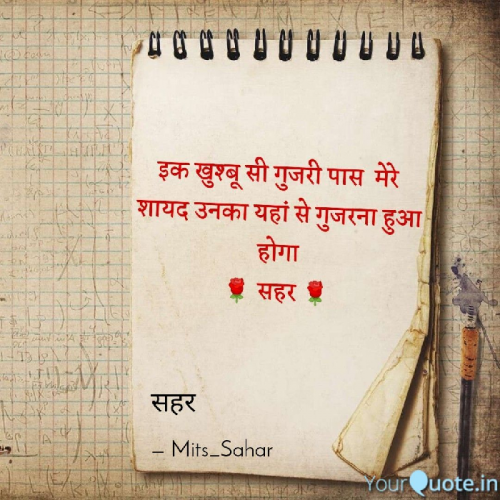 इक खुश्बू सी गुजरी पास मेरे
शायद उनका यहां से गुजरना हुआ
होगा
🌹 सहर 🌹
सहर
– Mits_Sahar
YourQuote.in